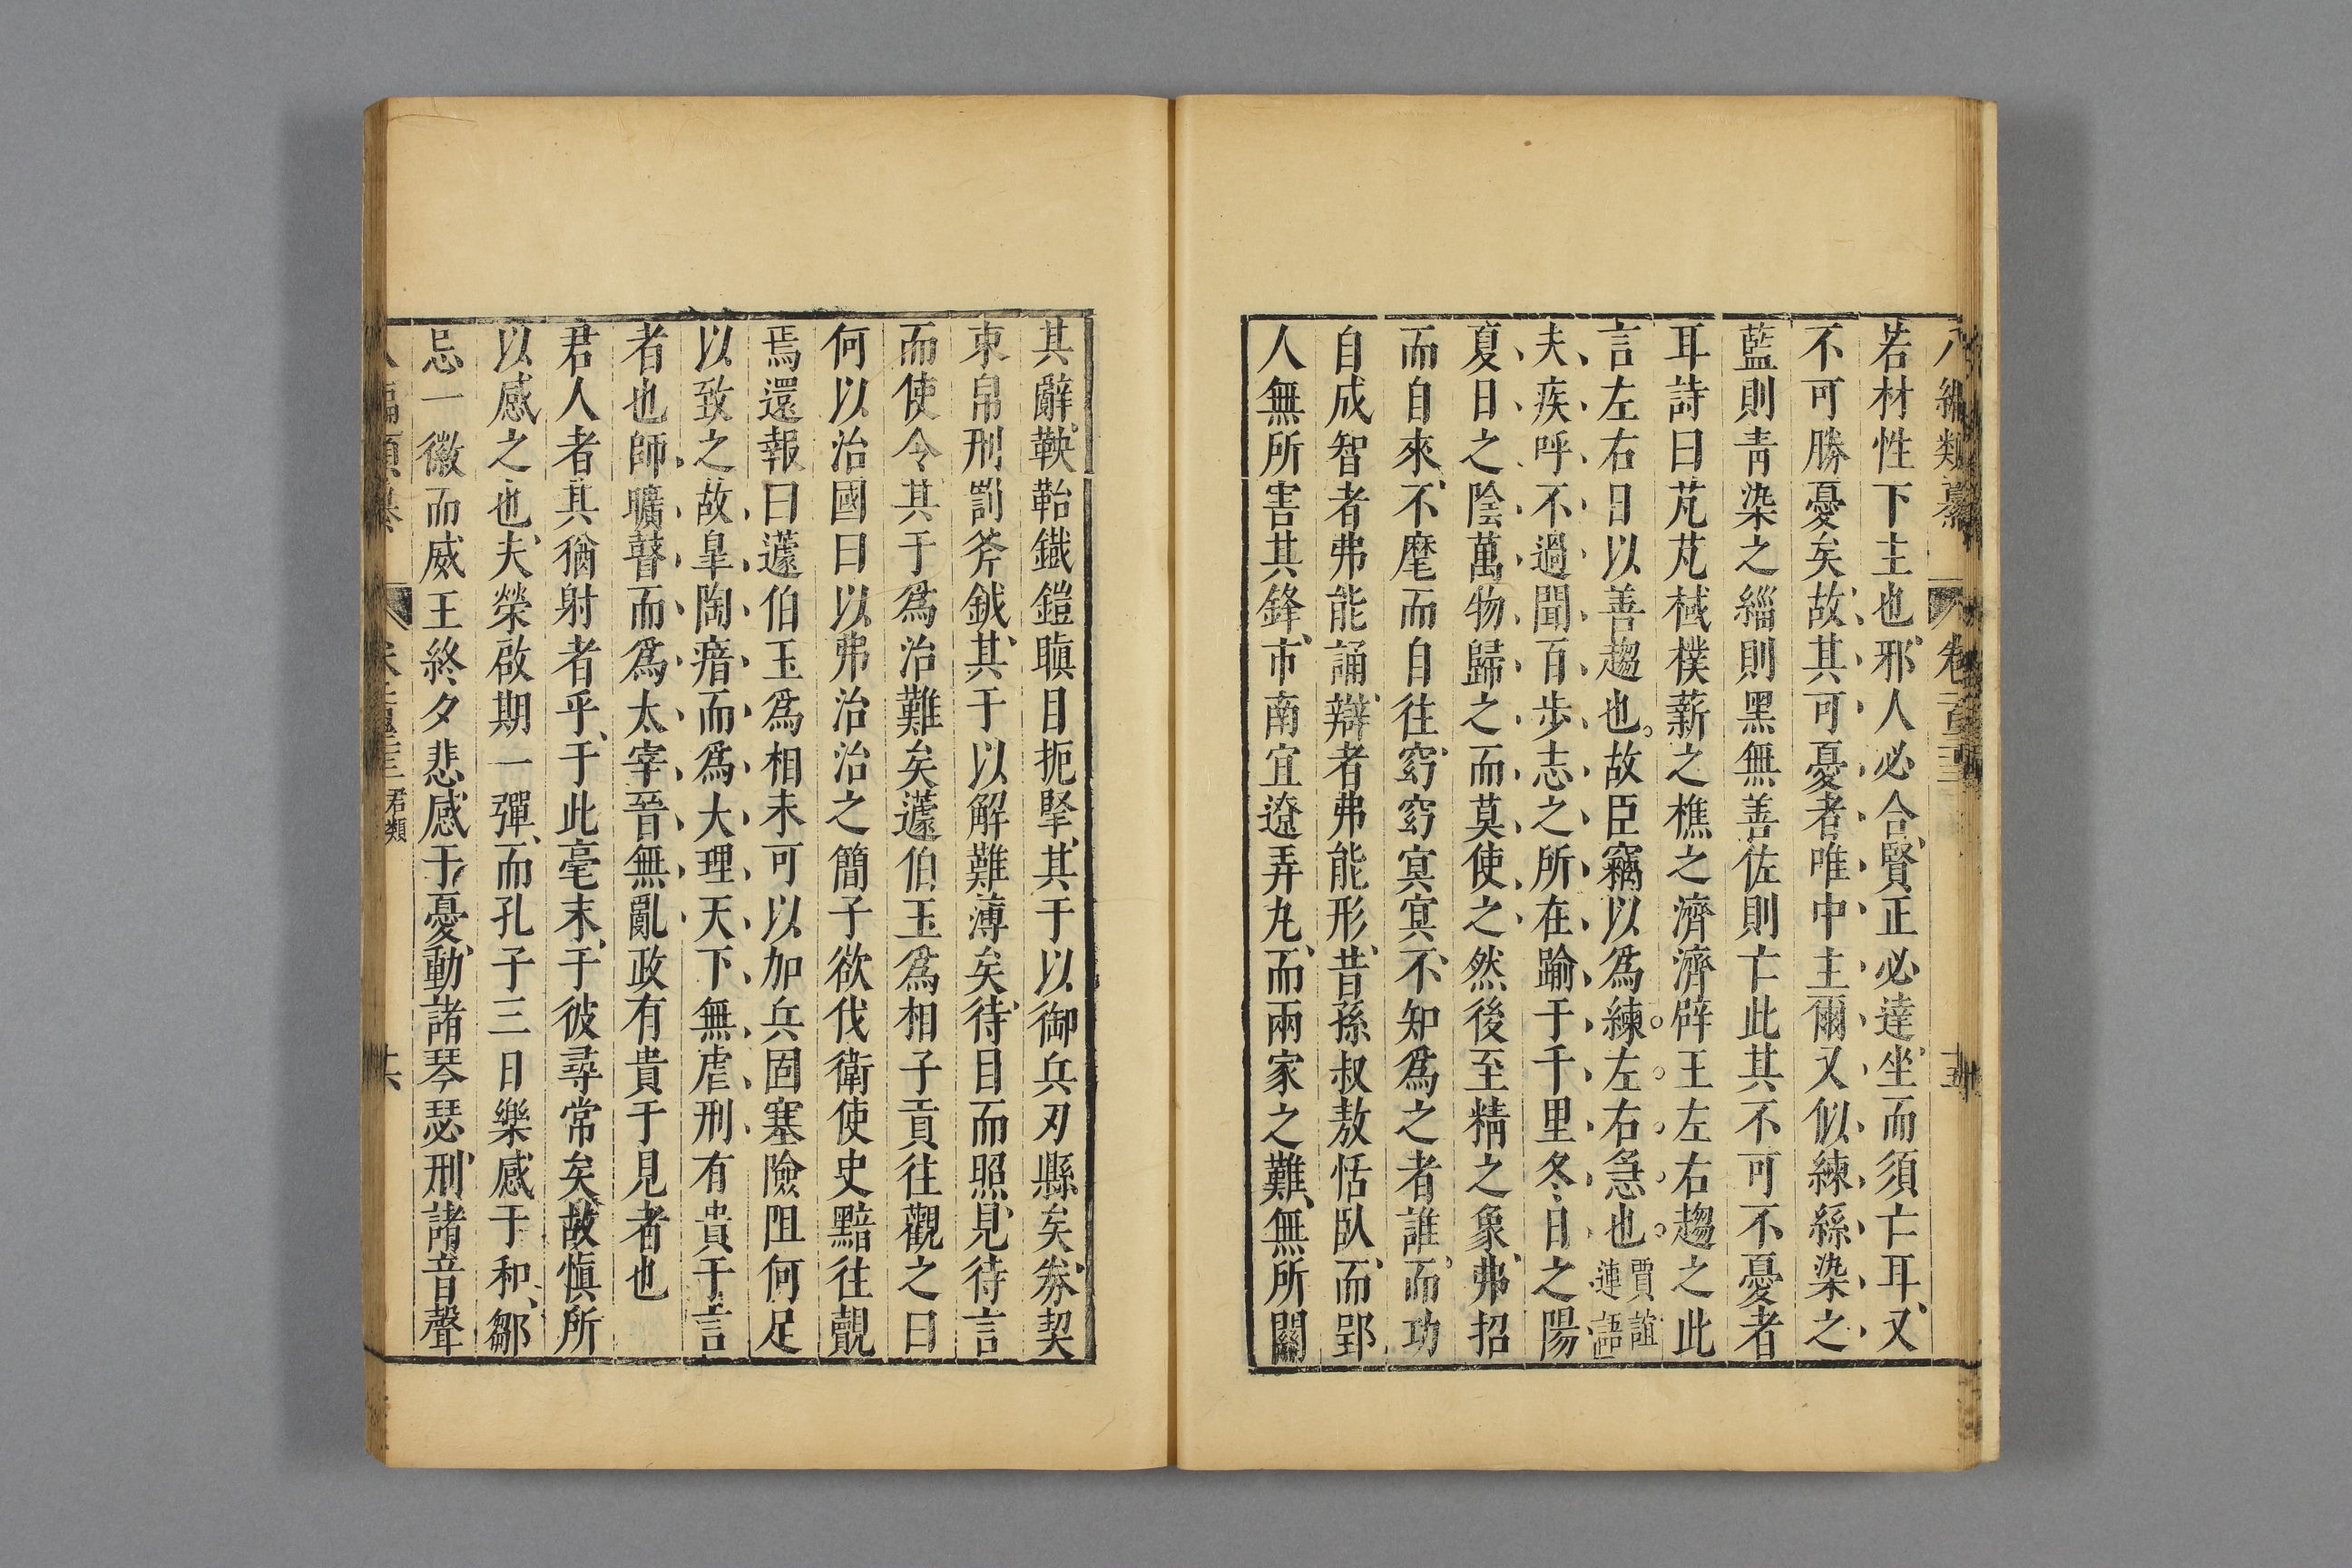 八編類纂 卷 百 三 十五
若材性下主也邪人必合賢正必達坐而須亡耳又
不可勝憂矣故其可憂者唯中主爾又似練絲染之
藍則靑染之緇則黑無善佐則亡此其不可不憂者
耳詩曰芃芃棫樸薪之樵之濟濟辟王左右趨之此
言左右日以善趨也故臣竊以爲練左右急也賈誼連語
夫疾呼不過聞百步志之所在踰于千里冬日之陽
夏日之陰萬物歸之而莫使之然後至精之象弗招
而自來不麾而自往窈窈冥冥不知爲之者誰而功
自成智者弗能誦辯者弗能形昔孫叔敖恬臥而郢
人無所害其鋒市南宜遼弄丸而兩家之難無所關
其辭鞅鞈鐵鎧瞋目扼掔其于以御兵刃縣矣券契
束帛刑罰斧鉞其于以解難薄矣待目而照見待言
而使令其于爲治難矣蘧伯玉爲相子貢往觀之曰
何以治國曰以弗治治之簡子欲伐衛使史黯往覿
焉還報曰蘧伯玉爲相未可以加兵固塞險阻何足
以致之故皐陶瘖而爲大理天下無虐刑有貴于言
者也師曠瞽而爲太宰晉無亂政有貴于見者也
君人者其猶射者乎于此毫末于彼尋常矣故愼所
以感之也夫榮啟期一彈而孔子三日樂感于和鄒
忌一徽而威王終夕悲感于憂動諸琴瑟刑諸音聲
編類纂 君類 十六